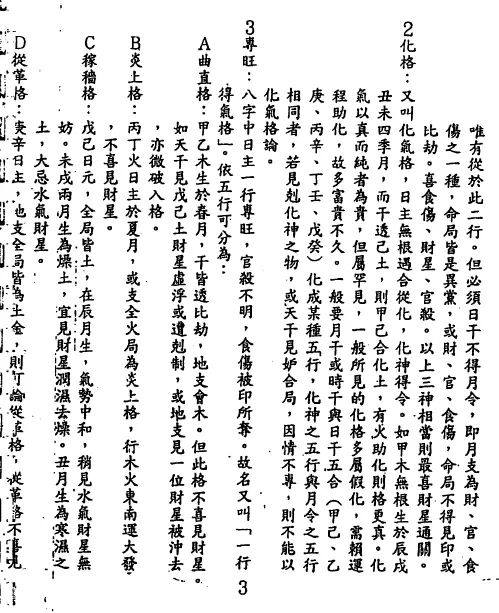 唯有從於此二行。但必須日干不得月令，即月支為財、官、食
傷之一種，命局皆是異黨，或財、官、食傷，命局不得見印或
比劫。喜食傷、財星、官殺。以上三神相當則最喜財星通關。
2化格：又叫化氣格，日主無根遇合從化，化神得令。如甲木無根生於辰戌
丑未四季月，而干透己土，則甲己合化土，有火助化則格更真。化
氣以真而純者為貴，但屬罕見，一般所見的化格多屬假化，需賴運
程助化，故多富貴不久。一般要月干或時干與日干五合（甲己、乙
庚、丙辛、丁壬、戊癸）化成某種五行，化神之五行與月令之五行
相同者，若見剋化神之物，或天干見妒合局，因情不專，則不能以
化氣格論。
3專旺：八字中日主一行專旺，官殺不明，食傷被印所奪。故名又叫「一行
得氣格」。依五行可分為：
A曲直格：甲乙木生於春月，干皆透比劫，地支會木。但此格不喜見財星。
如天干見戊己土財星虛浮或遭剋制，或地支見一位財星被沖去
，亦微破入格。
B炎上格：丙丁火日主於夏月，或支全火局為炎上格，行木火東南運大發
，不喜見財星。
C稼穡格：戊己日元，全局皆土，在辰月生，氣勢中和，稍見水氣財星無
妨。未戌兩月生為燥土，宜見財星潤濕去燥。丑月生為寒濕之
土，大忌水氣財星。
D從革格：庚辛日主，地支全局皆為土金，則可論從革格，從革格不喜見
3